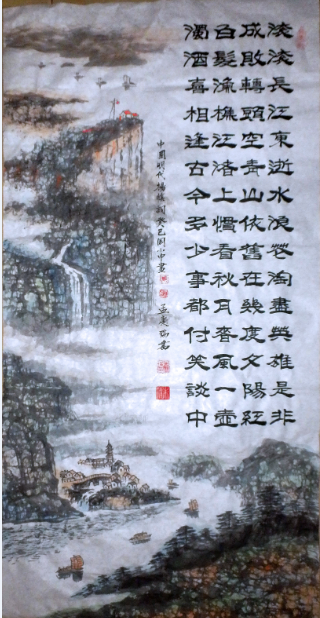 滾滾長江東逝水浪花淘盡英雄是非
成敗轉頭空青山依舊在幾度夕陽紅
白髮漁樵江渚上慣看秋月春風一壺
濁酒喜相逢古今多少事都付笑談中
中國明代楊慎詞癸巳